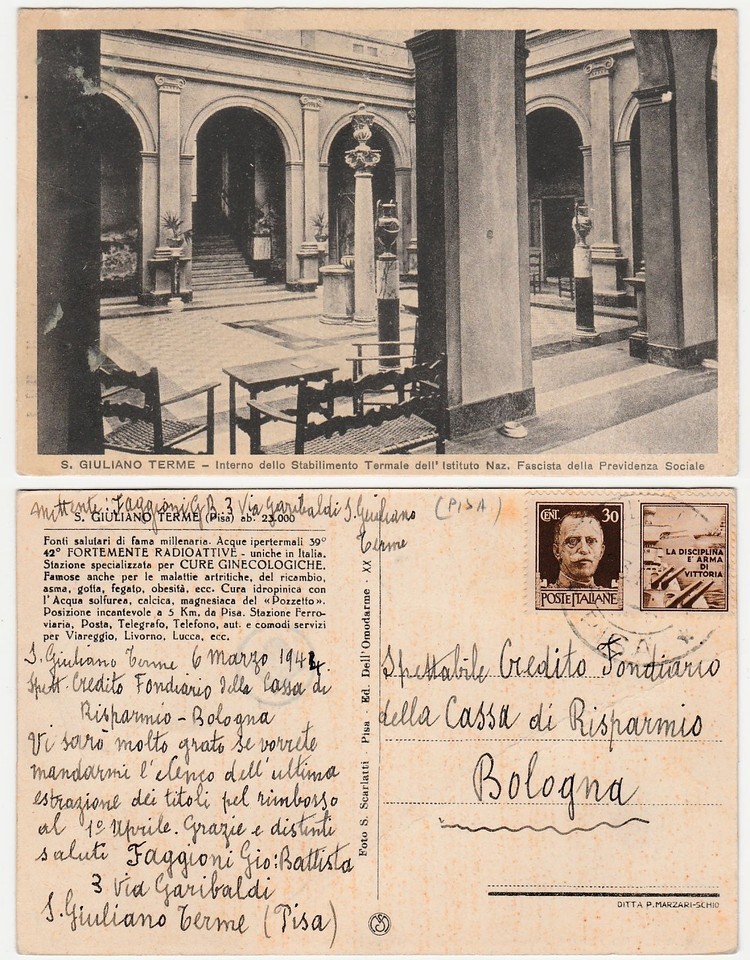 S. GIULIANO TERME – Interno dello Stabilimento Termale dell' Istituto Naz. Fascista della Previdenza Sociale
Mittente: Faggioni G.B. 3 Via Garibaldi S. Giuliano (PISA)
Terme
S. GIULIANO TERME (Pisa) ab. 23.000
Fonti salutari di fama millenaria. Acque ipertermali 39°
42° FORTEMENTE RADIOATTIVE - uniche in Italia.
Stazione specializzata per CURE GINECOLOGICHE.
Famose anche per le malattie artritiche, del ricambio,
asma, gotta, fegato, obesità, ecc. Cura idropinica con
l'Acqua solfurea, calcica, magnesiaca del «Pozzetto».
Posizione incantevole a 5 Km. da Pisa. Stazione Ferro-
viaria, Posta, Telegrafo, Telefono, aut. e comodi servizi
per Viareggio, Livorno, Lucca, ecc.
S. Giuliano Terme 6 Marzo 1944
Spett. Credito Fondiario della Cassa di
Risparmio - Bologna
Vi sarò molto grato se vorrete
mandarmi l'elenco dell'ultima
estrazione dei titoli pel rimborso
al 1° Aprile. Grazie e distinti
saluti Faggioni Gio: Battista
3 Via Garibaldi
S. Giuliano Terme (Pisa)
Foto S. Scarlatti Pisa - Ed. Dell'Omodarme - XX
CENT. 30
POSTE ITALIANE
LA DISCIPLINA
E' ARMA
DI
VITTORIA
PISA
Spettabile Credito Fondiario
della Cassa di Risparmio
Bologna
DITTA P. MARZARI-SCHIO